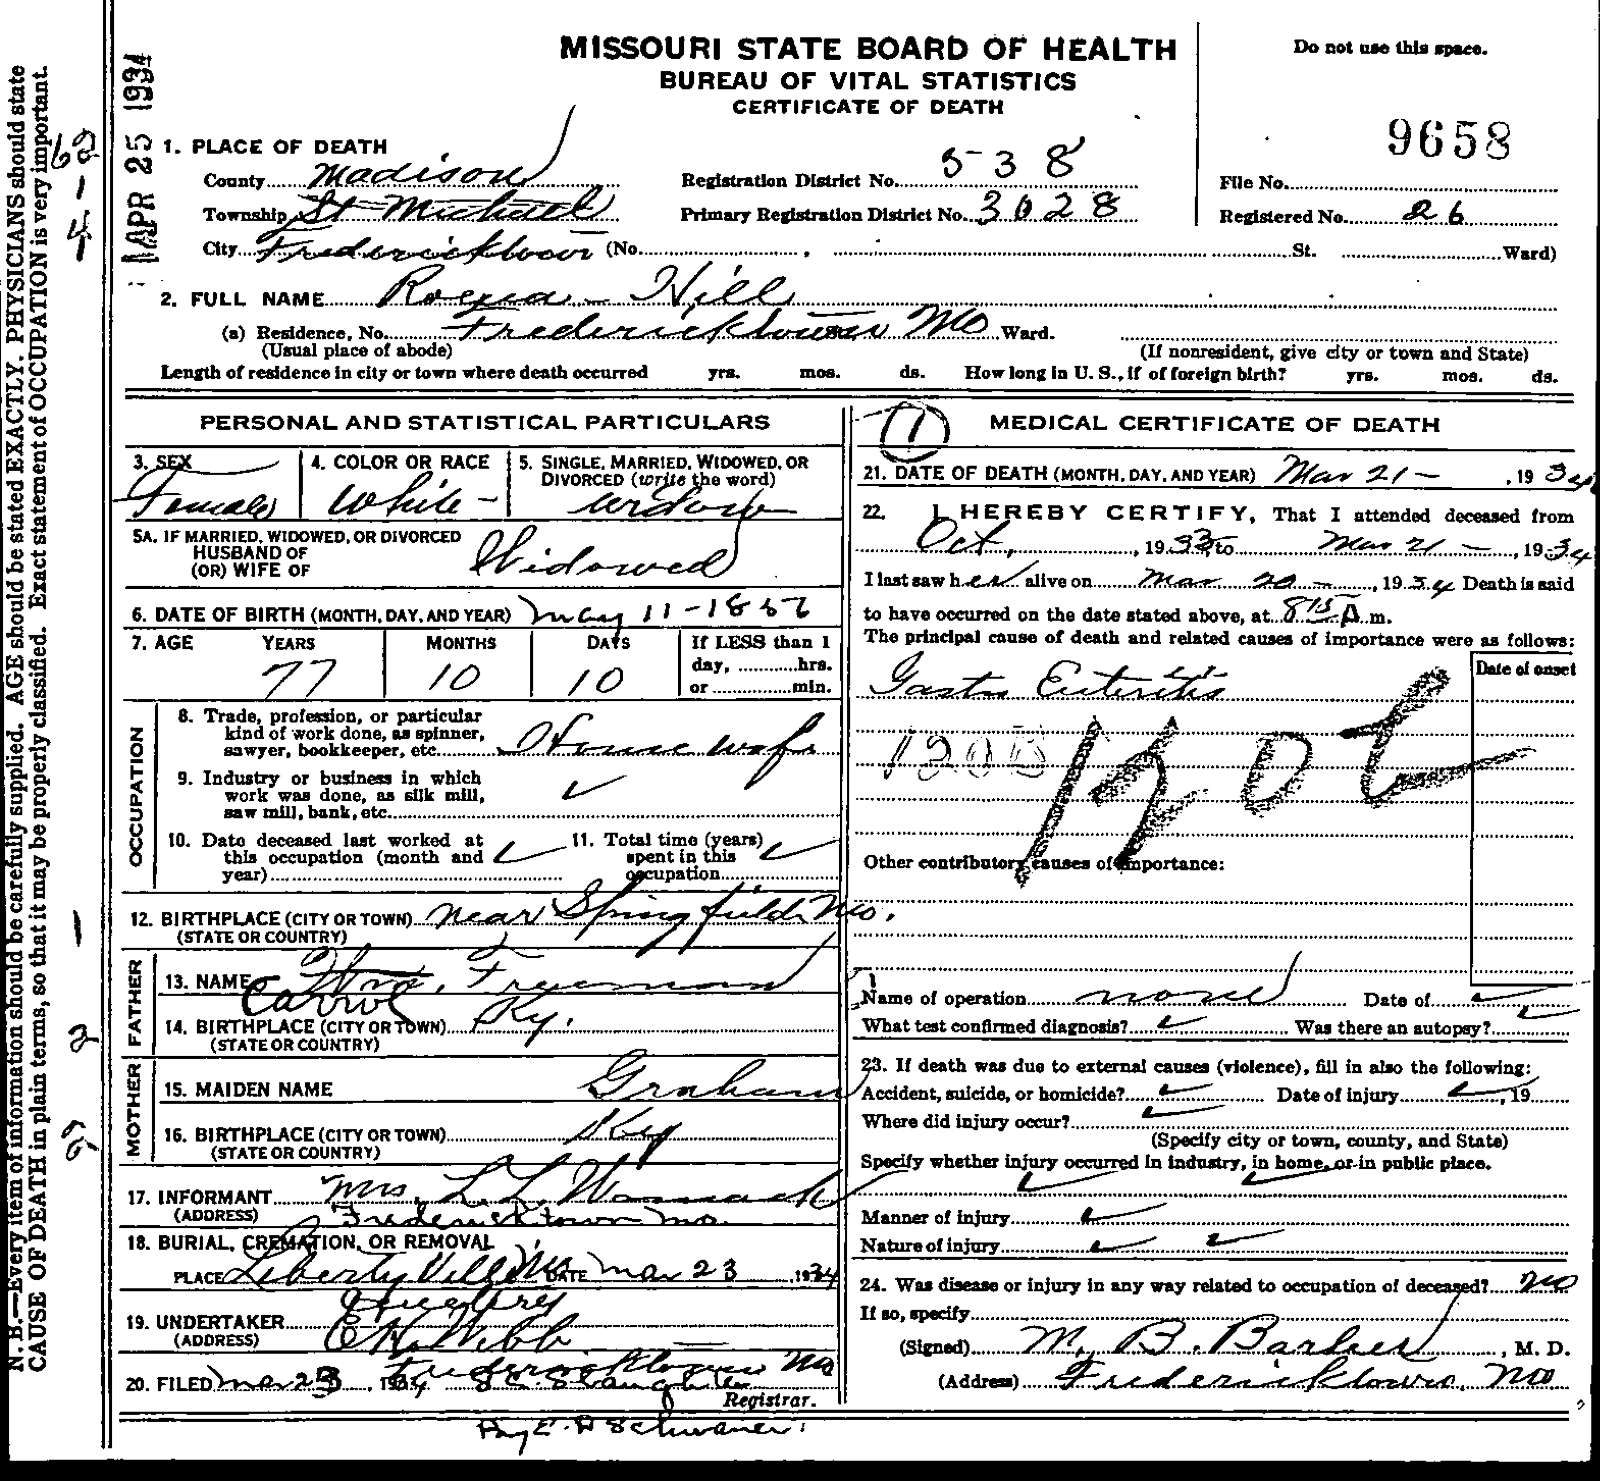 MISSOURI STATE BOARD OF HEALTH
BUREAU OF VITAL STATISTICS
CERTIFICATE OF DEATH
Do not use this space.
9658
APR 25 1934
1. PLACE OF DEATH
County Madison Registration District No. 538 File No.
Township St Michael Primary Registration District No. 3028 Registered No. 26
City Fredericktown (No. , St. Ward)
2. FULL NAME Hill
(a) Residence, No. Fredericktown Mo Ward.
(Usual place of abode) (If nonresident, give city or town and State)
Length of residence in city or town where death occurred yrs. mos. ds. How long in U. S., if of foreign birth? yrs. mos. ds.
PERSONAL AND STATISTICAL PARTICULARS
3. SEX 4. COLOR OR RACE 5. SINGLE, MARRIED, WIDOWED, OR
DIVORCED (write the word)
Female White - widow
5A. IF MARRIED, WIDOWED, OR DIVORCED
HUSBAND OF
(OR) WIFE OF Widowed
6. DATE OF BIRTH (MONTH, DAY, AND YEAR) May 11-
7. AGE YEARS MONTHS DAYS If LESS than 1
day, hrs.
or min.
77 10 10
OCCUPATION
8. Trade, profession, or particular
kind of work done, as spinner,
sawyer, bookkeeper, etc. House wife
9. Industry or business in which
work was done, as silk mill,
saw mill, bank, etc.
10. Date deceased last worked at
this occupation (month and
year)
11. Total time (years)
spent in this
occupation
12. BIRTHPLACE (CITY OR TOWN) near Springfield Mo.
(STATE OR COUNTRY)
FATHER
13. NAME Freeman
Carrol
14. BIRTHPLACE (CITY OR TOWN) Ky.
(STATE OR COUNTRY)
MOTHER
15. MAIDEN NAME Graham
16. BIRTHPLACE (CITY OR TOWN) Ky
(STATE OR COUNTRY)
17. INFORMANT Mrs. L. L. Womack
(ADDRESS) Fredericktown Mo.
18. BURIAL, CREMATION, OR REMOVAL
PLACE Liberty Ville Mo DATE Mar 23 1934
19. UNDERTAKER
(ADDRESS) Webb
Fredericktown Mo
20. FILED Mar 23, 1934 S.C. Slaughter
Registrar.
By E. D Schwaner.
1
MEDICAL CERTIFICATE OF DEATH
21. DATE OF DEATH (MONTH, DAY, AND YEAR) Mar 21 - , 1934
22. I HEREBY CERTIFY, That I attended deceased from
Oct, , 1933, to Mar 21 - , 1934
I last saw her alive on Mar 20 - , 1934 Death is said
to have occurred on the date stated above, at 8 15 A m.
The principal cause of death and related causes of importance were as follows:
Date of onset
Gastro Enteritis
Other contributory causes of importance:
Name of operation none Date of
What test confirmed diagnosis? Was there an autopsy?
23. If death was due to external causes (violence), fill in also the following:
Accident, suicide, or homicide? Date of injury , 19
Where did injury occur?
(Specify city or town, county, and State)
Specify whether injury occurred in industry, in home, or in public place.
Manner of injury
Nature of injury
24. Was disease or injury in any way related to occupation of deceased? no
If so, specify
(Signed) M. B. Barber , M. D.
(Address) Fredericktown, Mo
N. B.—Every item of information should be carefully supplied. AGE should be stated EXACTLY. PHYSICIANS should state
CAUSE OF DEATH in plain terms, so that it may be properly classified. Exact statement of OCCUPATION is very important.